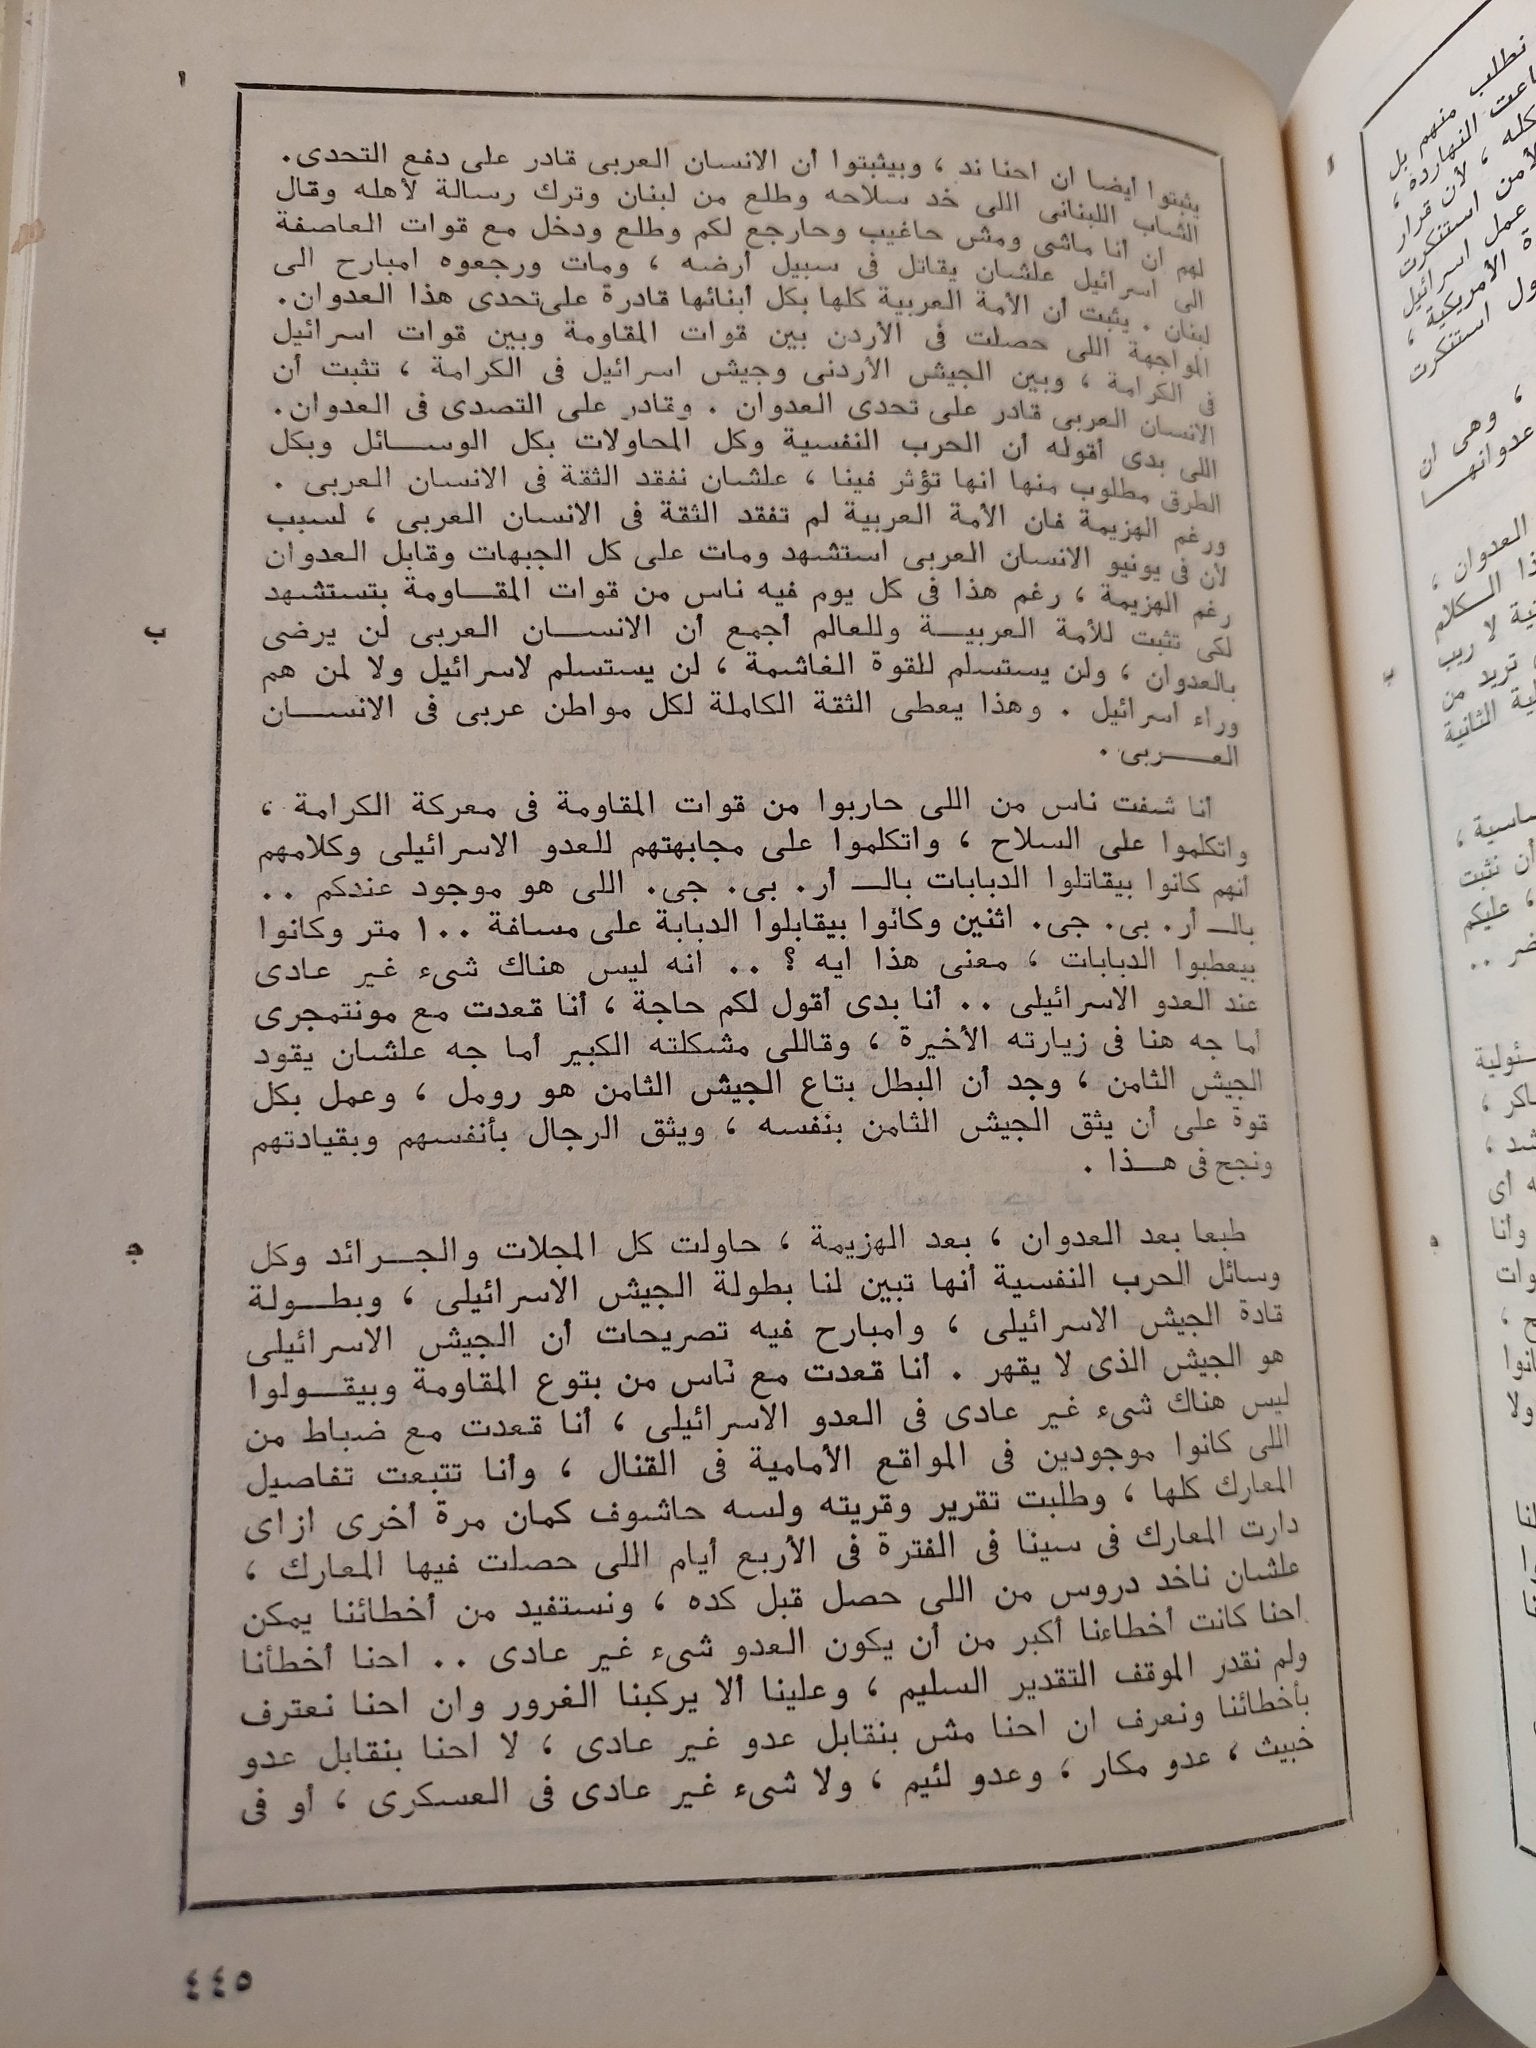 ا
يثبتوا أيضا ان احنا ند ، وبيثبتوا أن الانسان العربى قادر على دفع التحدى.
الشاب اللبنانى اللى خد سلاحه وطلع من لبنان وترك رسالة لأهله وقال
لهم ان أنا ماشى ومش حاغيب وحارجع لكم وطلع ودخل مع قوات العاصفة
الى اسرائيل علشان يقاتل فى سبيل أرضه ، ومات ورجعوه امبارح الى
لبنان . يثبت أن الأمة العربية كلها بكل أبنائها قادرة على تحدى هذا العدوان.
المواجهة اللى حصلت فى الأردن بين قوات المقاومة وبين قوات اسرائيل
فى الكرامة ، وبين الجيش الأردنى وجيش اسرائيل فى الكرامة ، تثبت أن
الانسان العربى قادر على تحدى العدوان . وقادر على التصدى فى العدوان.
اللى بدى أقوله أن الحرب النفسية وكل المحاولات بكل الوســـائل وبكل
الطرق مطلوب منها انها تؤثر فينا ، علشان نفقد الثقة فى الانسان العربى .
ورغم الهزيمة فان الأمة العربية لم تفقد الثقة فى الانسان العربى ، لسبب
لأن فى يونيو الانسان العربى استشهد ومات على كل الجبهات وقابل العدوان
رغم الهزيمة ، رغم هذا فى كل يوم فيه ناس من قوات المقـــاومة بتستشهد
لكى تثبت للأمة العربيـــة وللعالم أجمع أن الانســـان العربى لن يرضى
بالعدوان ، ولن يستسلم للقوة الغاشمة ، لن يستسلم لاسرائيل ولا لمن هم
وراء اسرائيل . وهذا يعطى الثقة الكاملة لكل مواطن عربى فى الانســـان
العـــربى .
ب
أنا شفت ناس من اللى حاربوا من قوات المقاومة فى معركة الكرامة ،
واتكلموا على السلاح ، واتكلموا على مجابهتهم للعدو الاسرائيلى وكلامهم
أنهم كانوا بيقاتلوا الدبابات بالـ أر. بى. جى. اللى هو موجود عندكم ..
بالـ أر. بى. جى. اثنين وكانوا بيقابلوا الدبابة على مسافة ١٠٠ متر وكانوا
بيعطبوا الدبابات ، معنى هذا ايه ؟ .. انه ليس هناك شىء غير عادى
عند العدو الاسرائيلى .. أنا بدى أقول لكم حاجة ، أنا قعدت مع مونتمجرى
أما جه هنا فى زيارته الأخيرة ، وقاللى مشكلته الكبير أما جه علشان يقود
الجيش الثامن ، وجد أن البطل بتاع الجيش الثامن هو رومل ، وعمل بكل
قوة على أن يثق الجيش الثامن بنفسه ، ويثق الرجال بأنفسهم وبقيادتهم
ونجح فى هـــذا .
د
طبعا بعد العدوان ، بعد الهزيمة ، حاولت كل المجلات والجـــرائد وكل
وسائل الحرب النفسية أنها تبين لنا بطولة الجيش الاسرائيلى ، وبطـــولة
قادة الجيش الاسرائيلى ، وامبارح فيه تصريحات أن الجيش الاسرائيلى
هو الجيش الذى لا يقهر . أنا قعدت مع ناس من بتوع المقاومة وبيقـــولوا
ليس هناك شىء غير عادى فى العدو الاسرائيلى ، أنا قعدت مع ضباط من
اللى كانوا موجودين فى المواقع الأمامية فى القنال ، وأنا تتبعت تفاصيل
المعارك كلها ، وطلبت تقرير وقريته ولسه حاشوف كمان مرة أخرى ازاى
دارت المعارك فى سينا فى الفترة فى الأربع أيام اللى حصلت فيها المعارك ،
علشان ناخد دروس من اللى حصل قبل كده ، ونستفيد من أخطائنا يمكن
احنا كانت أخطاءنا أكبر من أن يكون العدو شىء غير عادى .. احنا أخطأنا
ولم نقدر الموقف التقدير السليم ، وعلينا ألا يركبنا الغرور وان احنا نعترف
بأخطائنا ونعرف ان احنا مش بنقابل عدو غير عادى ، لا احنا بنقابل عدو
خبيث ، عدو مكار ، وعدو لئيم ، ولا شىء غير عادى فى العسكرى ، أو فى
٤٤٥